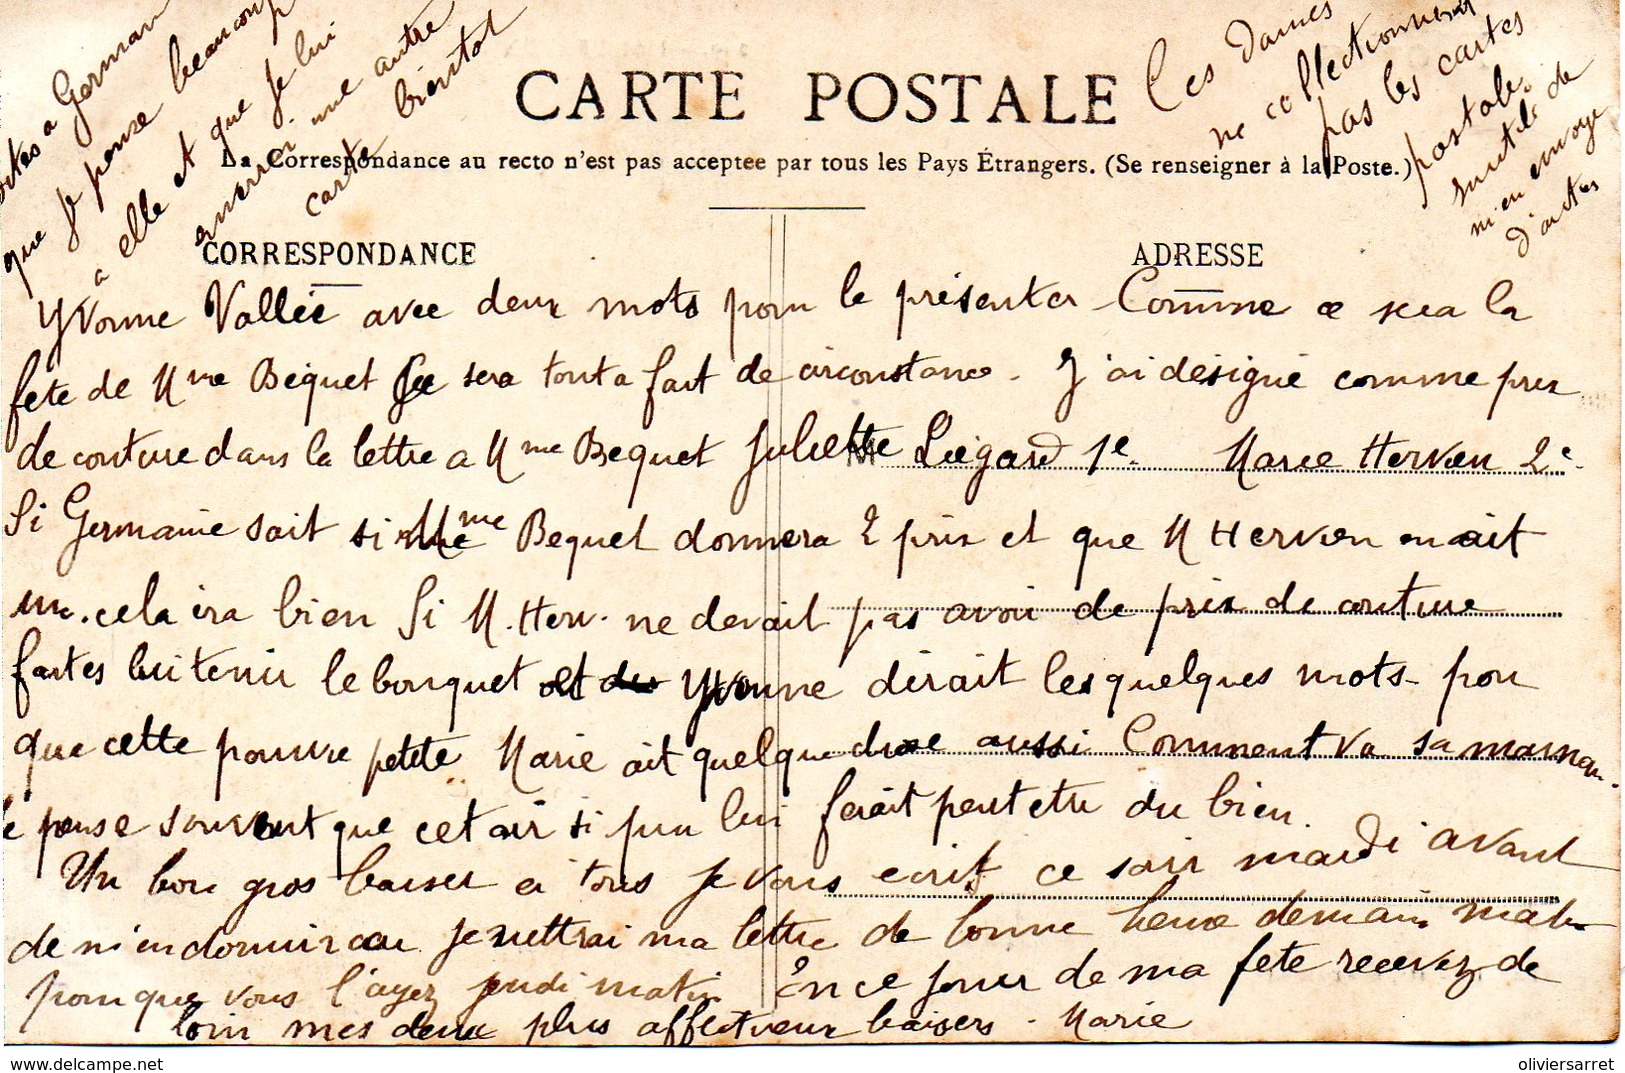 CARTE POSTALE
La Correspondance au recto n'est pas acceptee par tous les Pays Étrangers. (Se renseigner à la Poste.)
CORRESPONDANCE
ADRESSE
Dites a Germain
que Je pense beaucoup
a elle et que Je lui
enverrai une autre
carte bientot
Ces Dames
ne collectionnent
pas les cartes
postale.
inutile de
m'en envoyer
d'autres
Yvonne Vallée avec deux mots pour le présenter Comme ce sera la
fete de Mme Béquet Ce sera tout a fait de circonstance. J'ai désigné comme prix
de couture dans la lettre a Mme Bequet Juliette Liégard 1e. Marie Hervieu 2e.
Si Germaine sait si Mme Bequet donnera 2 prix et que M Hervieu en ait
un. cela ira bien Si M. Herv. ne devait pas avoir de prix de couture
faites lui tenir le bouquet et Yvonne dirait les quelques mots pour
que cette pauvre petite Marie ait quelque chose aussi Comment va sa maman.
Je pense souvent que cet air si pur lui ferait peut etre du bien.
Un bon gros baiser à tous Je vous écris ce soir mardi avant
de m'endormir car Je mettrai ma lettre de bonne heure demain matin
pour que vous l'ayez jeudi matin En ce jour de ma fete recevez de
loin mes deux plus affectueux baisers. Marie
delcampe.net
oliviersarret